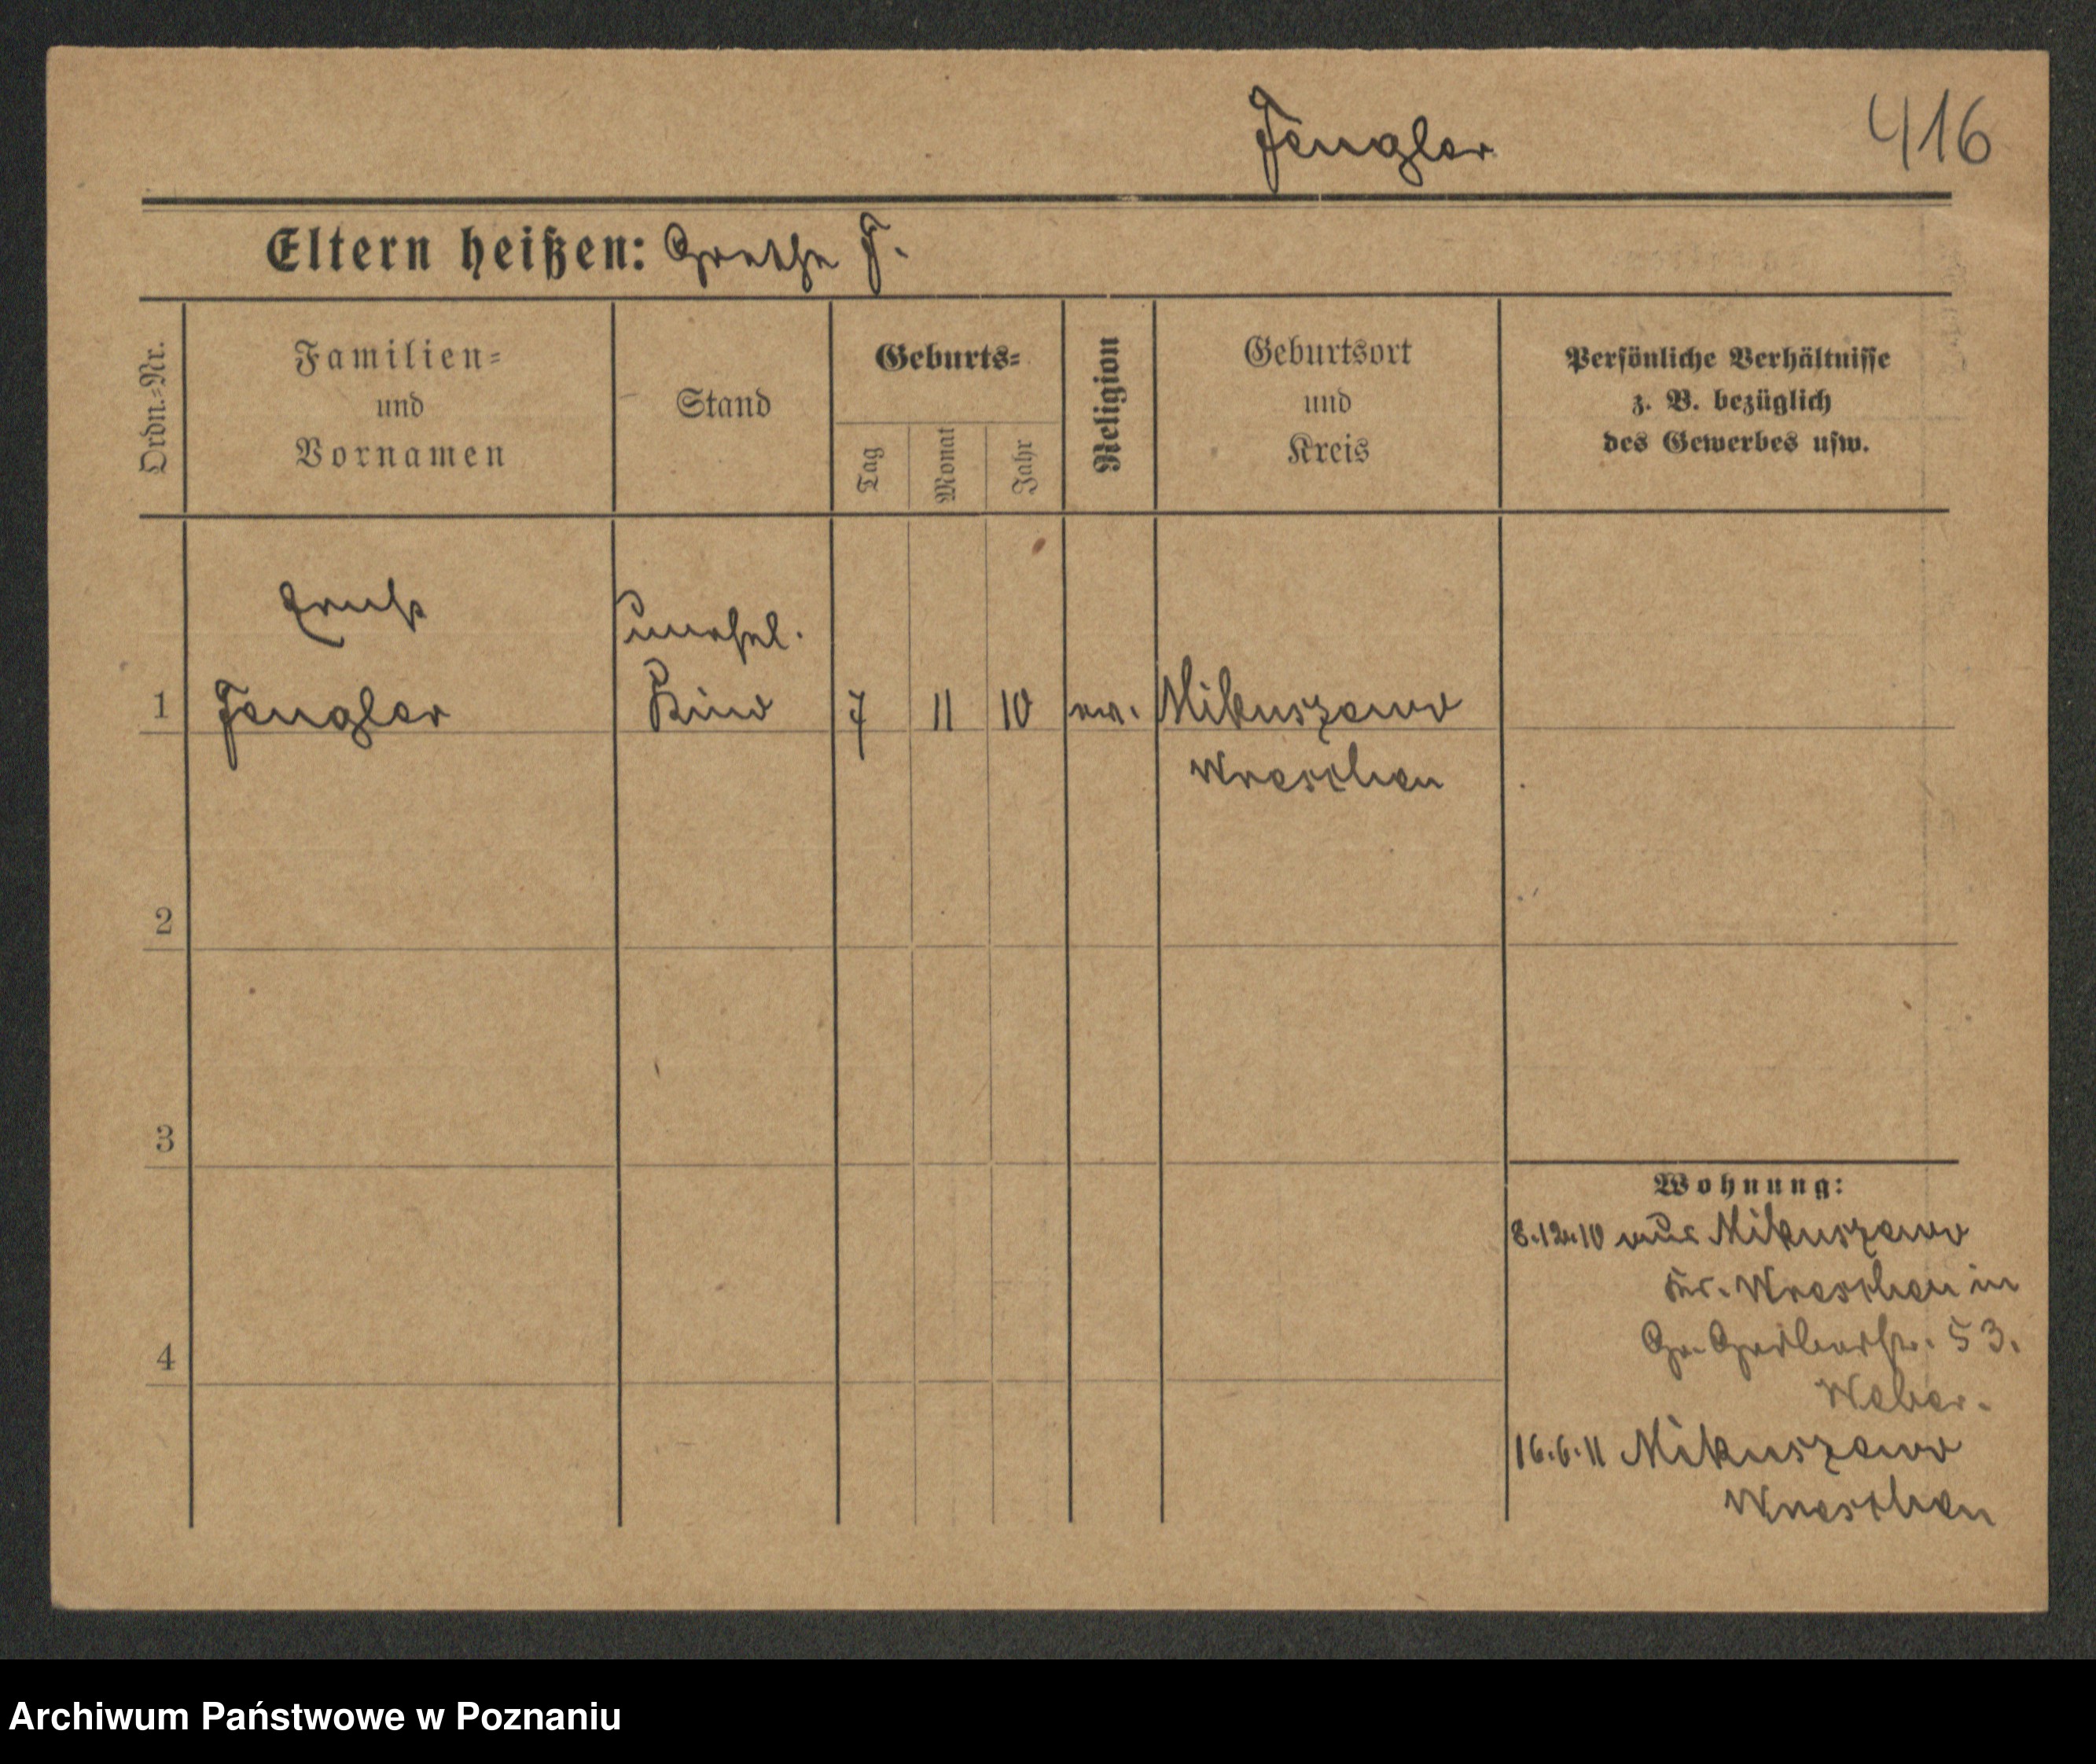 Fengler
416
Eltern heißen: Grethe F.
Ordn.-Nr.
Familien-
und
Vornamen
Stand
Geburts-
Tag
Monat
Jahr
Religion
Geburtsort
und
Kreis
Persönliche Verhältnisse
z. B. bezüglich
des Gewerbes usw.
Ernst
unehel.
1 Fengler Kind 7 11 10 ev. Mikuszewo
Wreschen
2
3
4
Wohnung:
8.12.10 aus Mikuszewo
Kr. Wreschen in
Gr. Gerberstr. 53.
Weber.
16.6.11 Mikuszewo
Wreschen
Archiwum Państwowe w Poznaniu